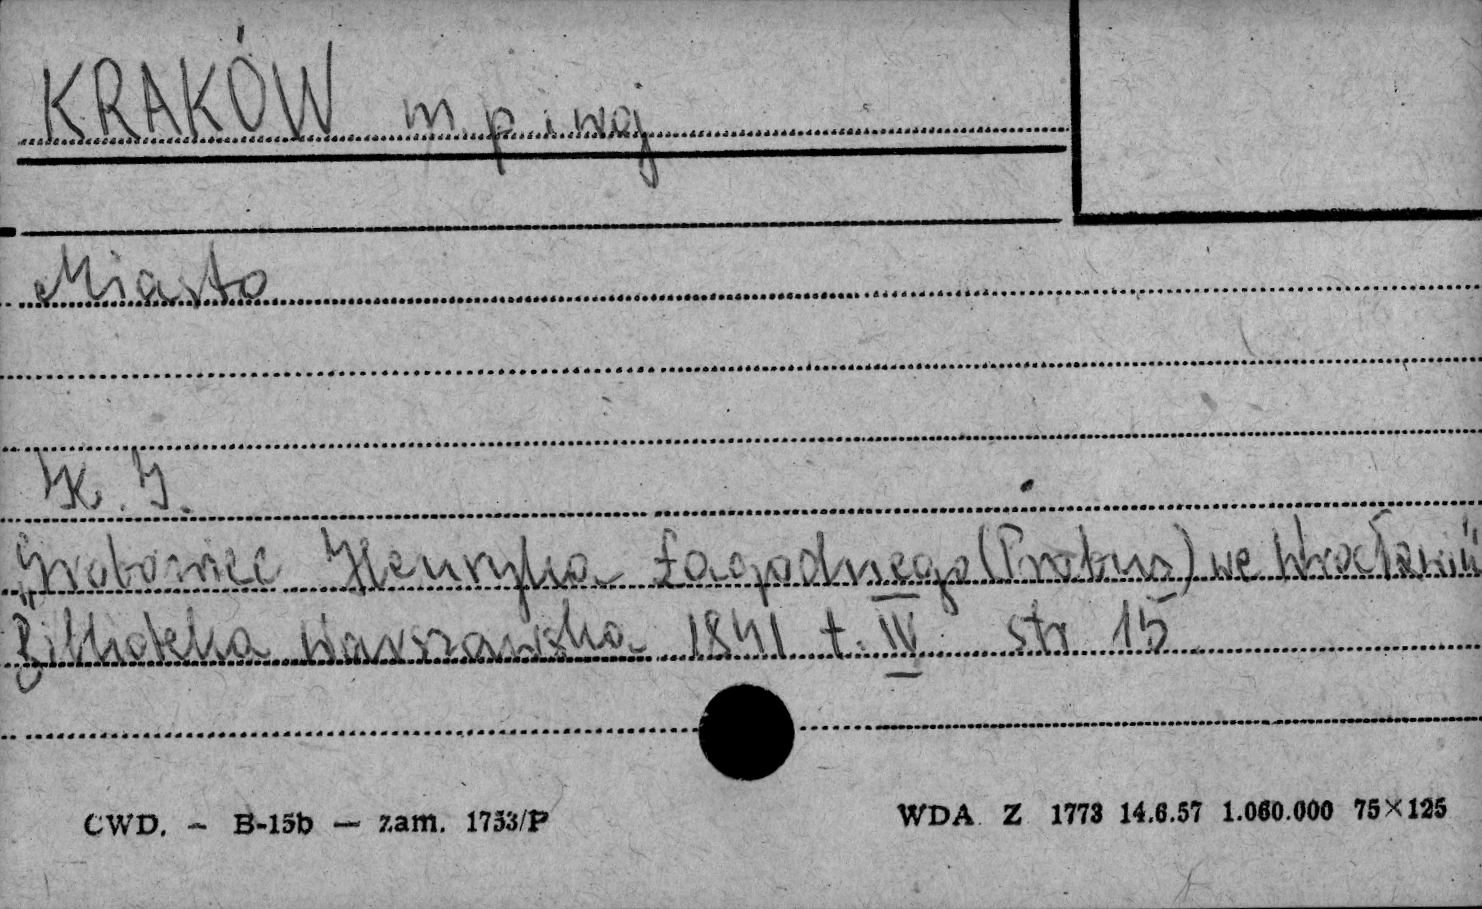 KRAKÓW m. p. i woj
Miasto
K. J.
„Grobowiec Henryka Łagodnego (Probus) we Wrocławiu"
Biblioteka Warszawska 1841 t. IV str 15
CWD. – B-15b – zam. 1753/P
WDA Z 1773 14.6.57 1.060.000 75×125